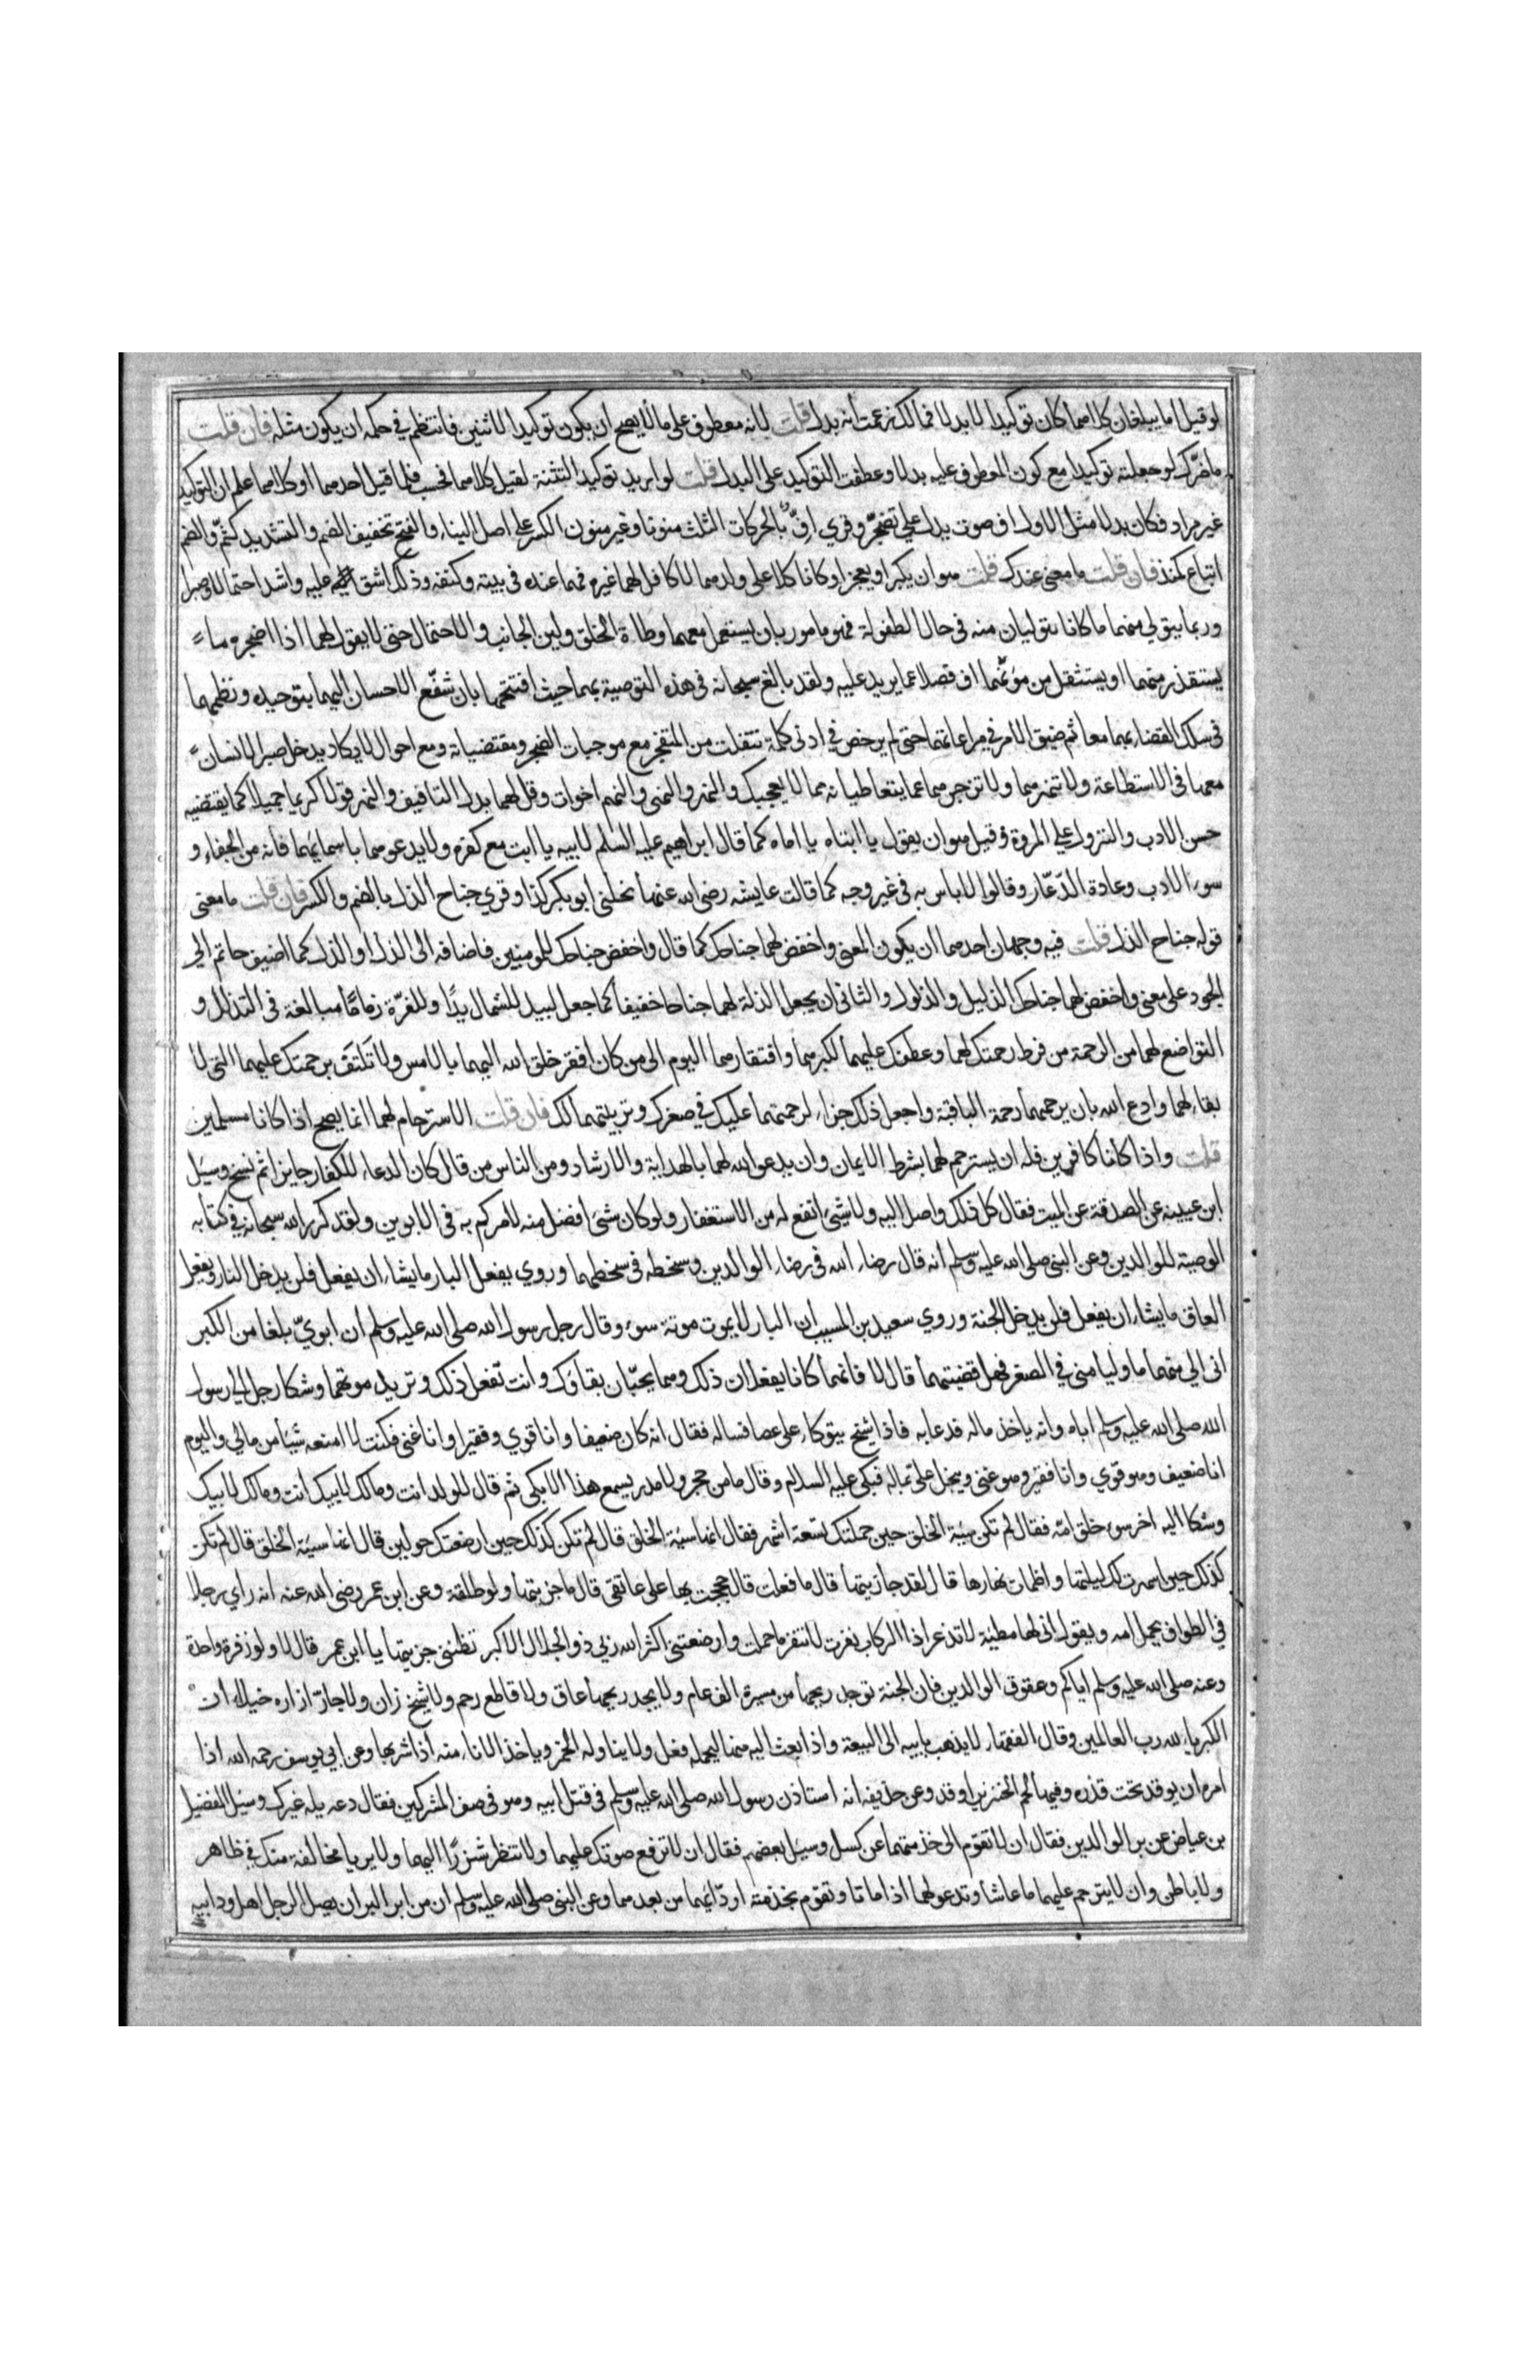 لو قيل اما يبلغان كلاهما كان توكيدا لا بدلا فما لك زعمت انه بدل قلت لانه معطوف على ما لا يصح ان يكون توكيدا للاثنين فانتظم في حكمه ان يكون مثله فان قلت
ما ضرّك لو جعلته توكيدا مع كون المعطوف عليه بدلا وعطفت التوكيد على البدل قلت لو اريد توكيد التثنية لقيل كلاهما فحسب فلما قيل احدهما او كلاهما علم ان التوكيد
غير مراد فكان بدلا مثل الاول اف صوت يدل على تضجّر وقري افّ بالحركات الثلث منونا وغير منون الكسر على اصل البناء والفتح تخفيف الضم والتشديد كثمّ والضم
اتباع كمنذ فان قلت ما معنى عندك قلت هو ان يكبرا ويعجزا وكانا كلا على ولدهما لا كافل لهما غيره فهما عنده في بيته وكنفه وذلك اشق عليه واشد احتمالا وصبرا
وربما يتولى منهما ما كانا يتوليان منه في حال الطفولة فهو مامور بان يستعمل معهما وطاة الخلق ولين الجانب والاحتمال حتى لا يقول لهما اذا اضجره ما
يستقذر منهما او يستثقل من مؤنهما اف فضلا عما يزيد عليه ولقد بالغ سبحانه في هذه التوصية بهما حيث افتتحها بان شفّع الاحسان اليهما بتوحيده ونظمهما
في سلك القضاء بهما معا ثم ضيق الامر في مراعاتهما حتى لم يرخص في ادنى كلمة تنفلت من المتضجر مع موجبات الضجر ومقتضياته ومع احوال لا يكاد يدخل صبر الانسان
معها في الاستطاعة ولا تنهرهما ولا تزجرهما عما يتعاطيانه مما لا يعجبك والنهر والنهي والنهم اخوات وقل لهما بدل التافيف والنهر قولا كريما جميلا كما يقتضيه
حسن الادب والنزول على المروة وقيل هو ان يقول يا ابتاه يا اماه كما قال ابراهيم عليه السلم لابيه يا ابت مع كفره ولا يدعوهما باسمايهما فانه من الجفاء و
سوء الادب وعادة الدّعّار وقالوا لا باس به في غير وجهه كما قالت عايشه رضى الله عنها نحلني ابو بكر كذا وقري جناح الذل بالضم والكسر فان قلت ما معنى
قوله جناح الذل قلت فيه وجهان احدهما ان يكون المعنى واخفض لهما جناحك كما قال واخفض جناحك للمومنين فاضافه الى الذل او الذل كما اضيف حاتم الى
الجود على معنى واخفض لهما جناحك الذليل والذلول والثاني ان يجعل الذلة لهما جناحا خفيفا كما جعل لبيد للشمال يدًا وللقرّة زمامًا مبالغة في التذلل و
التواضع لهما من الرحمة من فرط رحمتك لهما وعطفك عليهما لكبرهما وافتقارهما اليوم الى من كان افقر خلق الله اليهما بالامس ولا تكتف برحمتك عليهما التي لا
بقاء لهما وادع الله بان يرحمهما رحمة الباقية واجعل ذلك جزاء لرحمتهما عليك في صغرك وتربيتهما لك فان قلت الاسترحام لهما انما يصح اذا كانا مسلمين
قلت واذا كانا كافرين فله ان يسترحم لهما بشرط الايمان وان يدعو الله لهما بالهداية والارشاد ومن الناس من قال كان الدعاء للكفار جايزا ثم نسخ وسئل
ابن عيينه عن الصدقة عن الميت فقال كل ذلك واصل اليه ولا شيئ انفع له من الاستغفار ولو كان شئ افضل منه لامركم به في الابوين ولقد كرر الله سبحانه في كتابه
الوصية للوالدين وعن النبى صلى الله عليه وسلم انه قال رضاء الله في رضاء الوالدين وسخطه في سخطهما وروي يفعل البار ما يشاء ان يفعل فلن يدخل النار ويفعل
العاق ما يشاء ان يفعل فلن يدخل الجنة وروي سعيد بن المسيب ان البار لا يموت موتة سوء وقال رجل لرسول الله صلى الله عليه وسلم ان ابويّ بلغا من الكبر
انى الي منهما ما وليا منى في الصغر فهل قضيتهما قال لا فانهما كانا يفعلان ذلك وهما يحبّان بقاؤك وانت تفعل ذلك وتريد موتهما وشكا رجل الى رسول
الله صلى الله عليه وسلم اباه وانه ياخذ ماله فدعا به فاذا شيخ يتوكاء على عصا فساله فقال انه كان ضعيفا وانا قوي وفقيرا وانا غني فكنت لا امنعه شيئا من مالي واليوم
انا ضعيف وهو قوي وانا فقير وهو غنى ويبخل على بماله فبكى عليه السلام وقال ما من حجر ولا مدر يسمع هذا الا بكى ثم قال للولد انت ومالك لابيك انت ومالك لابيك
وشكا اليه اخر سوء خلق امّه فقال لم تكن سيئة الخلق حين حملتك تسعة اشهر فقال انها سيئة الخلق قال لم تكن كذلك حين ارضعتك حولين قال انها سيئة الخلق قال لم تكن
كذلك حين اسهرت لك ليلتها واظمات نهارها قال لقد جازيتها قال ما فعلت قال حججت بها على عاتقى قال ما جزيتها ولو طلقة وعن ابن عمر رضى الله عنه انه راي رجلا
في الطواف يحمل امه ويقول انى لها مطيّة لا تذعر اذا الركاب نفرت لا تنفر ما حملت وارضعتني اكثر الله ربي ذو الجلال الاكبر تظننى جزيتها يا ابن عمر قال لا ولو زفرة واحدة
وعنه صلى الله عليه وسلم اياكم وعقوق الوالدين فان الجنة توجد ريحها من مسيرة الف عام ولا يجد ريحها عاق ولا قاطع رحم ولا شيخ زان ولا جارّ ازاره خيلاء ان
الكبرياء لله رب العالمين وقال الفقهاء لا يذهب بابيه الى البيعة واذا بعث اليه منها ليحمله فعل ولا يناوله الخمر وياخذ الاناء منه اذا شربها وعن ابي يوسف رحمه الله اذا
امره ان يوقد تحت قدره وفيها لحم الخنزير اوقد وعن حذيفه انه استاذن رسول الله صلى الله عليه وسلم في قتل ابيه وهو في صف المشركين فقال دعه يله غيرك وسئل الفضيل
بن عياض عن بر الوالدين فقال ان لا تقوم الى خدمتهما عن كسل وسئل بعضهم فقال ان لا ترفع صوتك عليهما ولا تنظر شزرًا اليهما ولا يريا مخالفة منك في ظاهر
ولا باطن وان لا يترحم عليهما ما عاشا وتدعو لهما اذا ماتا وتقوم بخدمة اودّائهما من بعدهما وعن النبى صلى الله عليه وسلم ان من ابر البر ان يصل الرجل اهل ود ابيه